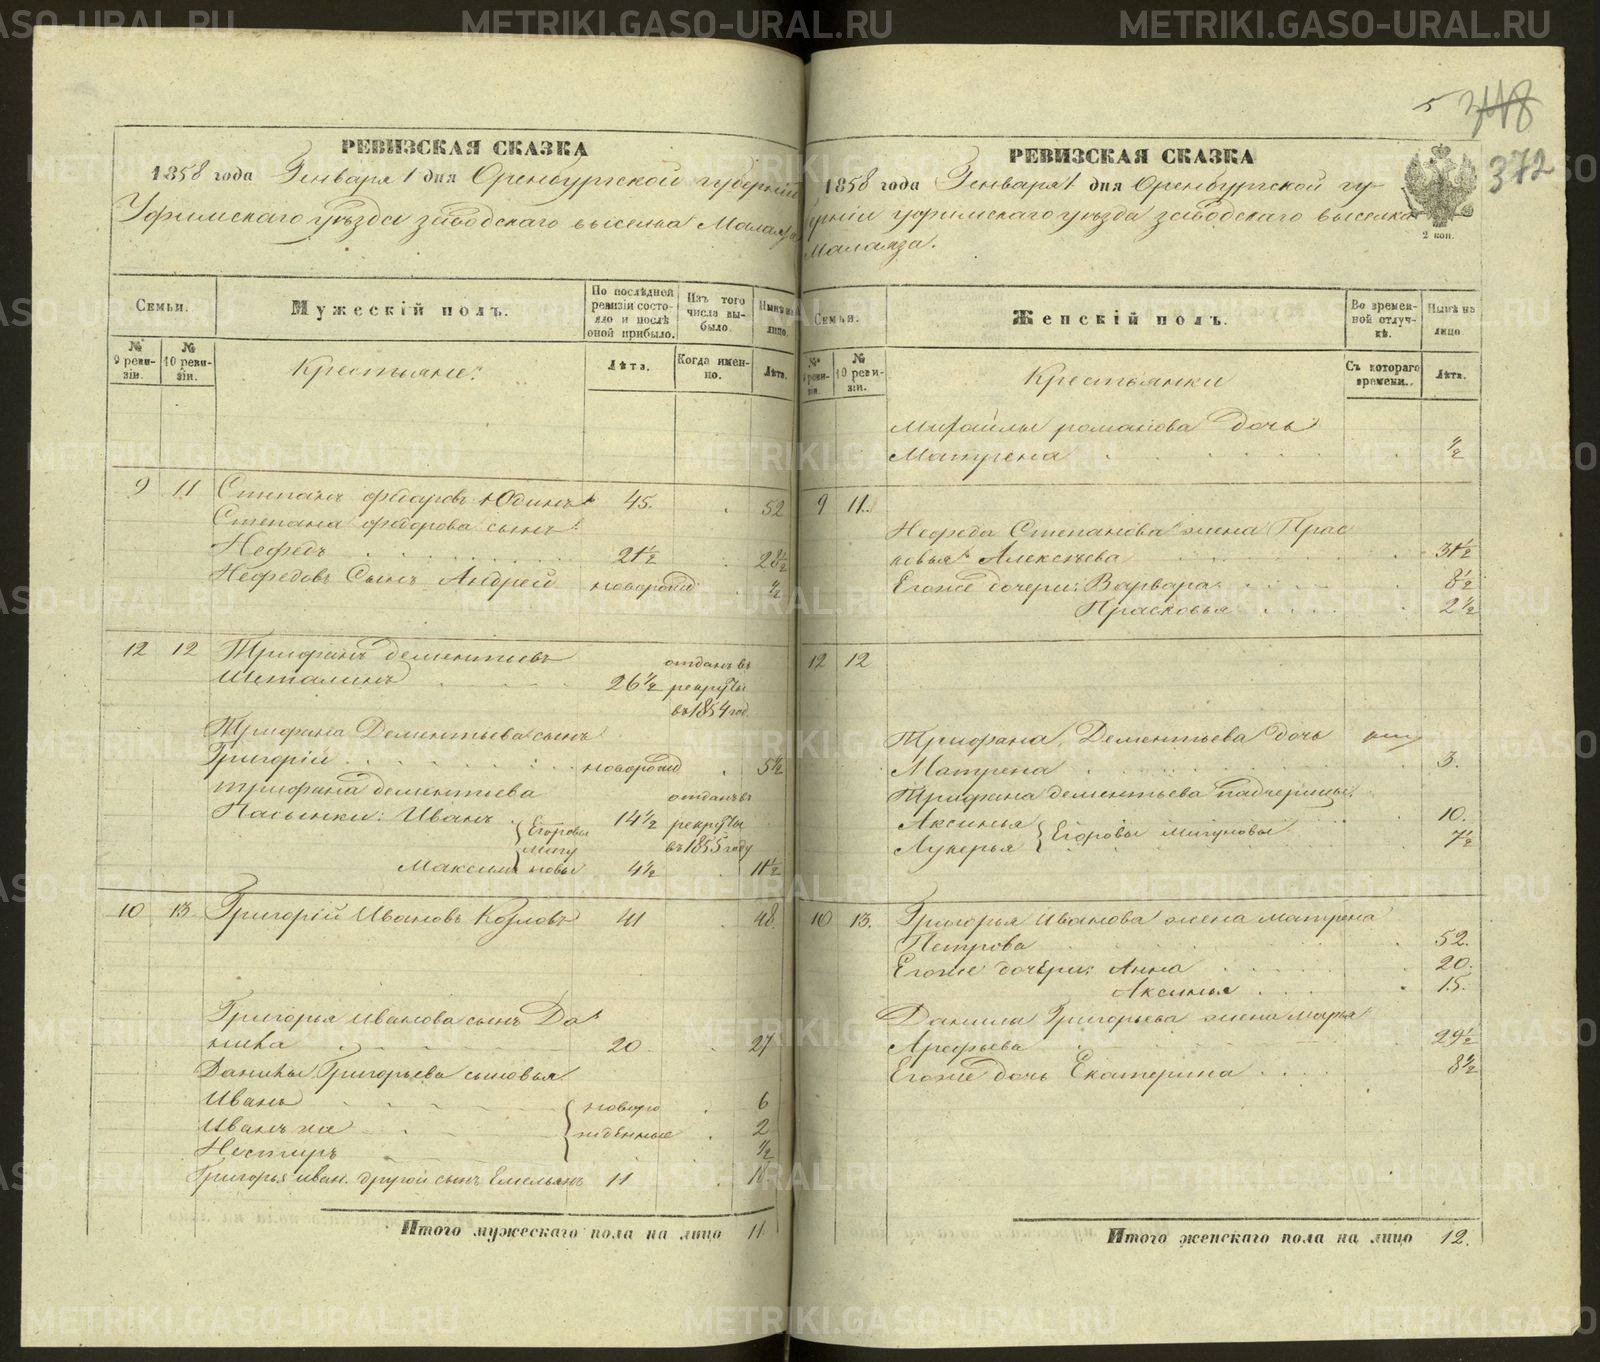 РЕВИЗСКАЯ СКАЗКА
1858 года Генваря 1 дня Оренбургской губерніи
Уфимскаго уѣзда заводскаго выселка Малаяза
Семьи.
Мужескій полъ.
По послѣдней ревизіи состояло и послѣ оной прибыло.
Изъ того числа выбыло.
Нынѣ на лицо.
№ 9 ревизіи.
№ 10 ревизіи.
Крестьяне:
Лѣта.
Когда именно.
Лѣта.
9 11 Степанъ Федаровъ Юдинъ 45. 52
Степана Федорова сынъ:
Нефедъ 21½ 28½
Нефедовъ Сынъ Андрей новорожд ½
12 12 Трифанъ Дементьевъ отданъ въ
Шеталинъ 26½ рекруты
въ 1854 год
Трифана Дементьева сынъ
Григорій новорожд 5½
Трифана Дементьева отданъ въ
Пасынки: Иванъ 14½ рекруты
Егоровы
Мигу въ 1855 году
Максимъ новы 4½ 11½
10 13 Григорій Ивановъ Козловъ 41 48
Григорья Иванова сынъ Да
нила 20 27
Данилы Григорьева сыновья
Иванъ новоро 6
Иванъ же жденные 2
Нестиръ ½
Григорья Иван. другой сынъ Емельянъ 11 18
Итого мужескаго пола на лицо 11
5 348
372
РЕВИЗСКАЯ СКАЗКА
1858 года Генваря 1 дня Оренбургской гу-
берніи Уфимскаго уѣзда заводскаго выселка
Малаяза.
2 коп.
Семьи.
Женскій полъ.
Во временной отлучкѣ.
Нынѣ на лицо.
№ 9 ревизіи.
№ 10 ревизіи.
Крестьянки
Съ котораго времени.
Лѣта.
Михайлы романова дочь
Матрена ½
9 11.
Нефеда Степанова жена Прас
ковья Алексѣева 31½
Егоже дочери: Варвара 8½
Прасковья 2½
12 12
Трифана Дементьева дочь
Матрена 3.
Трифана Дементьева падчерицы:
Аксинья 10.
Егоровы Мигуновы
Лукерья 7½
10 13. Григорья Иванова жена Матрена
Петрова 52.
Егоже дочери: Анна 20.
Аксинья 15.
Данилы Григорьева жена Марья
Арефьева 29½
Егоже дочь Екатерина 8½
Итого женскаго пола на лицо 12.
METRIKI.GASO-URAL.RU